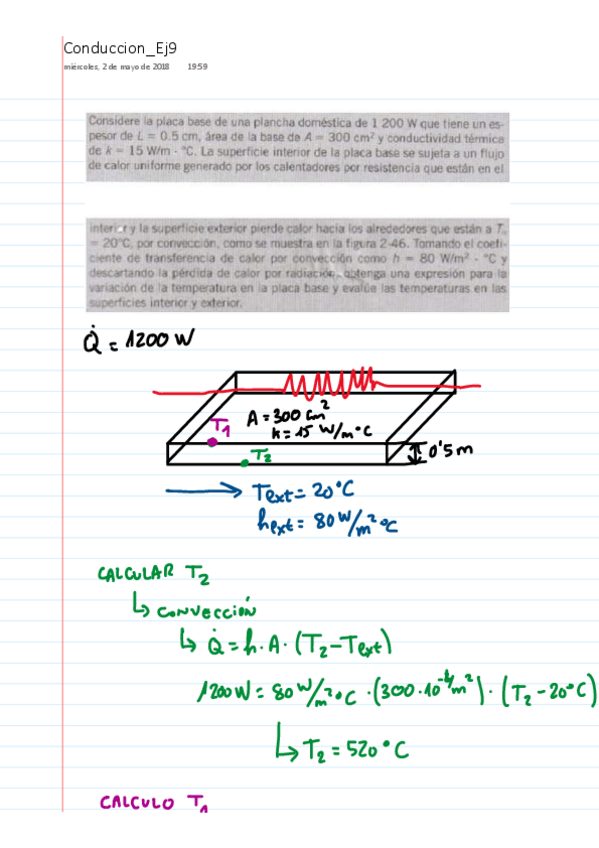 Conduccion_Ej9
miércoles, 2 de mayo de 2018 19:59
Considere la placa base de una plancha doméstica de 1 200 W que tiene un es-
pesor de L = 0.5 cm, área de la base de A = 300 cm² y conductividad térmica
de k = 15 W/m · °C. La superficie interior de la placa base se sujeta a un flujo
de calor uniforme generado por los calentadores por resistencia que están en el
interior y la superficie exterior pierde calor hacia los alrededores que están a T∞
= 20°C, por convección, como se muestra en la figura 2-46. Tomando el coefi-
ciente de transferencia de calor por convección como h = 80 W/m² · °C y
descartando la pérdida de calor por radiación, obtenga una expresión para la
variación de la temperatura en la placa base y evalúe las temperaturas en las
superficies interior y exterior.
Q̇ = 1200 W
A = 300 cm²
T1 k = 15 W/m·°C
T2 0'5 m
Text = 20°C
hext = 80 W/m²°C
CALCULAR T2
↳ CONVECCIÓN
↳ Q̇ = h·A·(T2-Text)
1200W = 80 W/m²·°C ·(300·10⁻⁴m²)·(T2-20°C)
↳ T2 = 520°C
CALCULO T1